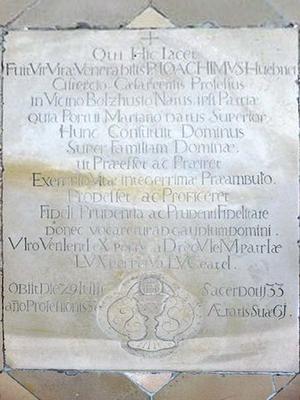 Qui Hic Iacet
Fuit Vir Vita Venerabilis P. IOACHIMVS Huebner
Cisterciо Caesareensis Professus
in Vicino Bolzhusio Natus ipsi Patriae
quia Portui Mariano datus Superior
Hunc Constituit Dominus
Super Familiam Dominae
ut Praeesset ac Praeiret
Exemplo vitae integerrimae Praeambulo
Prodesset ac Proficeret
Fideli Prudentia ac Prudenti Fidelitate
donec vocaretur ad gaudium Domini
LVX perpetVa LVCeat eI.
Obiit Die 29 Iulii
Sacerdotii 33
Aetatis Suae